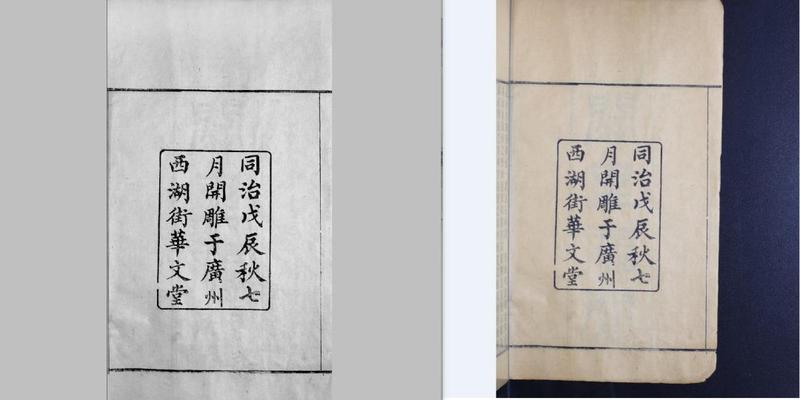 同治戊辰秋七
月開雕于廣州
西湖街華文堂
同治戊辰秋七
月開雕于廣州
西湖街華文堂